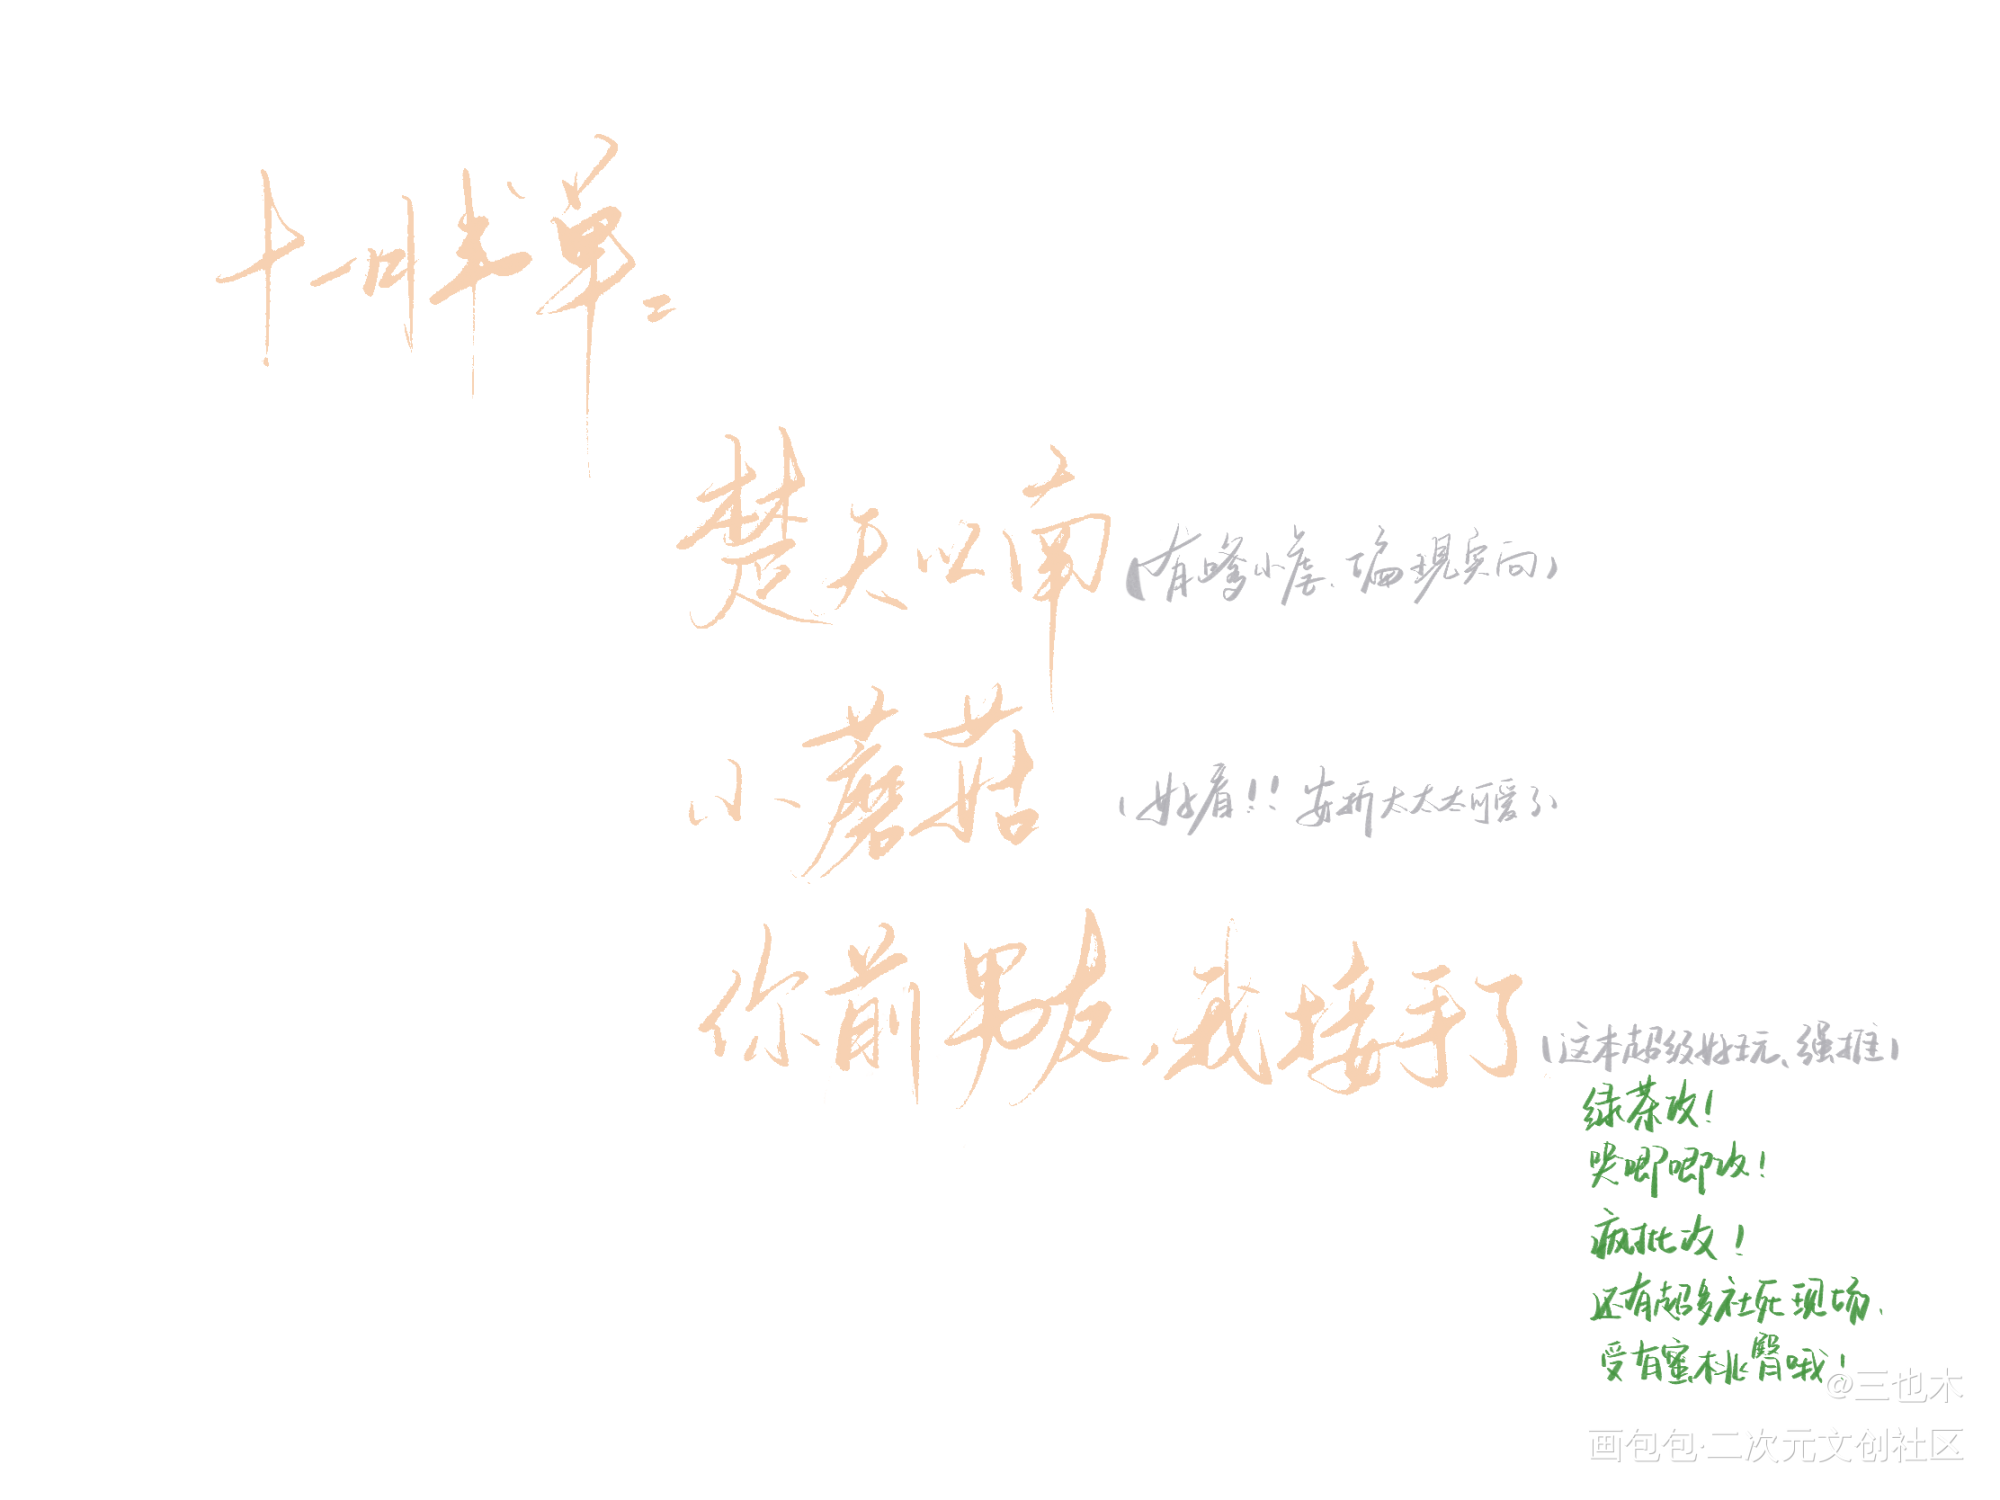 十一月书单:
楚天以南(有嗲小虐、偏現实向)
小蘑菇(好看!!安折太太太可爱了)
你前男友,我接手了(这本超级好玩、强推)
绿茶攻!
哭唧唧攻!
疯批攻!
还有超多社死现场、
受有蜜桃臀哦!
@三也木
画包包·二次元文创社区